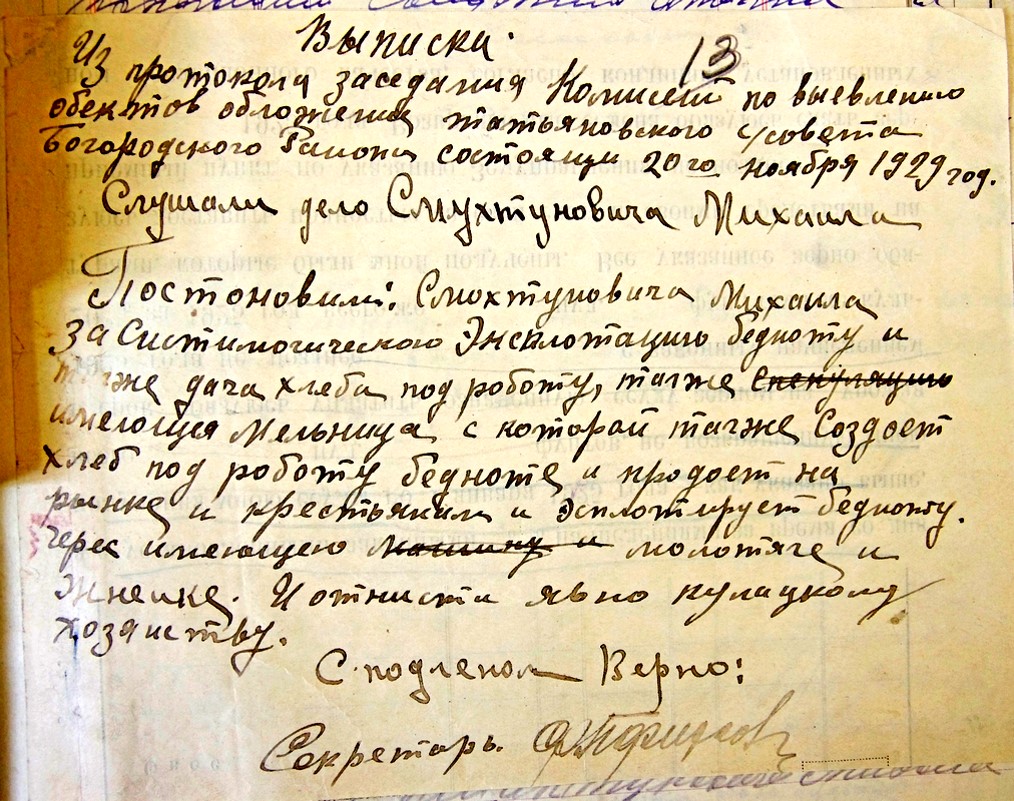 Выписка.
13
Из протокола заседания Комисеи по выевлению
обектов обложения татьяновского с/совета
Богородского Района состоящи 20го ноября 1929 год.
Слушали дело Смухтуновича Михаила
Постоновили: Смюхтуновича Михаила
За Систимогическою Эксплотацию бедноту и
также дача хлеба под роботу, также спекуляцию
имеющея мельница, с которай также Создоет
хлеб под роботу бедноте и продоет на
рынке и крестьяним и Эсплотирует бедноту.
Через имеющею машину и молотяге и
Жнеике. И отнисти явно кулацкому
хозяиству.
С подленом Верно:
Секретарь